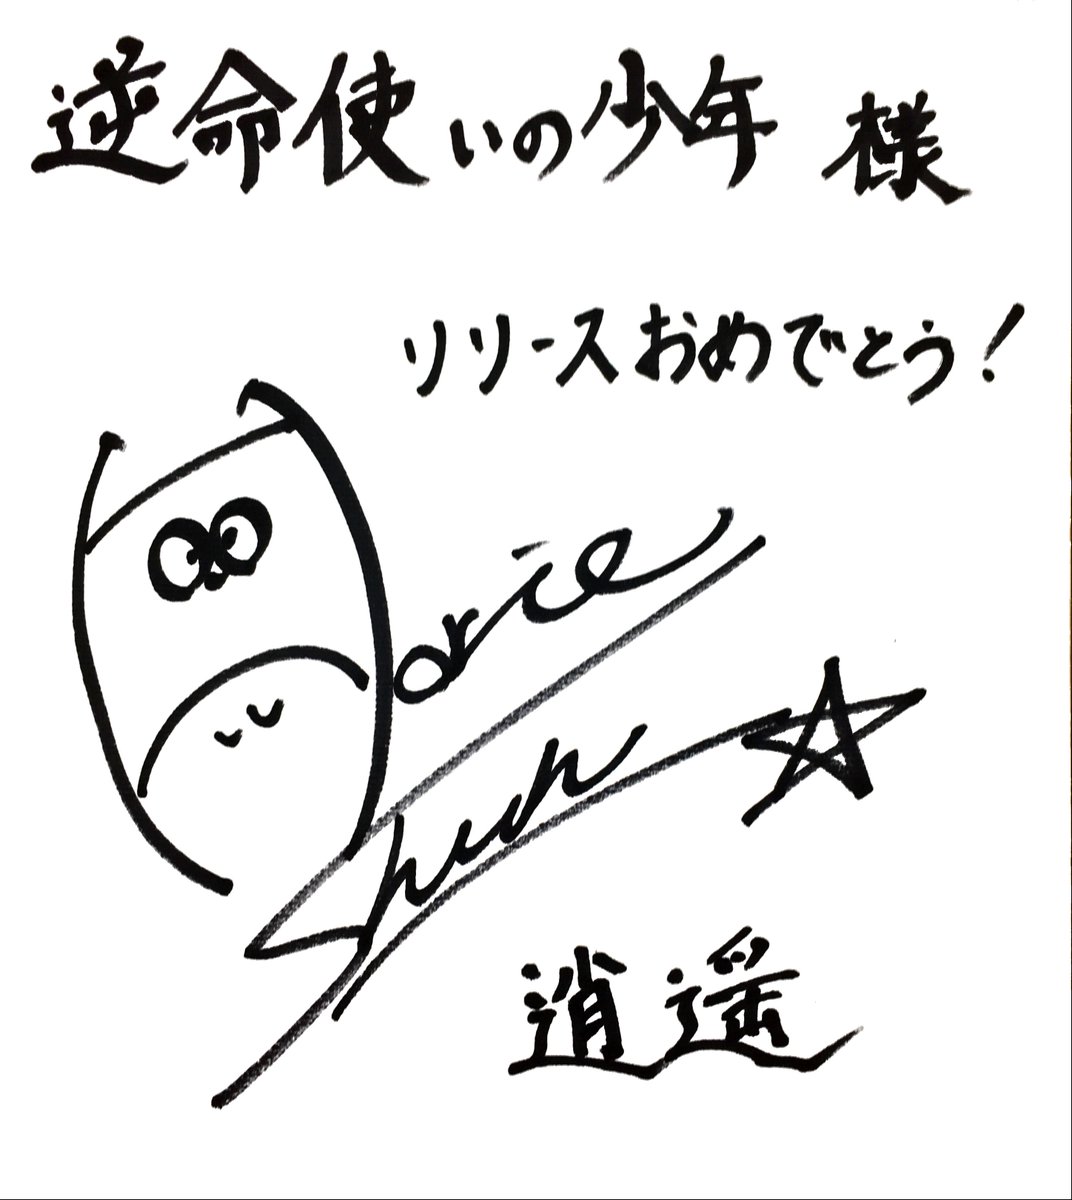 逆命使いの少年 様
リリースおめでとう!
Horie
Shun
逍遥